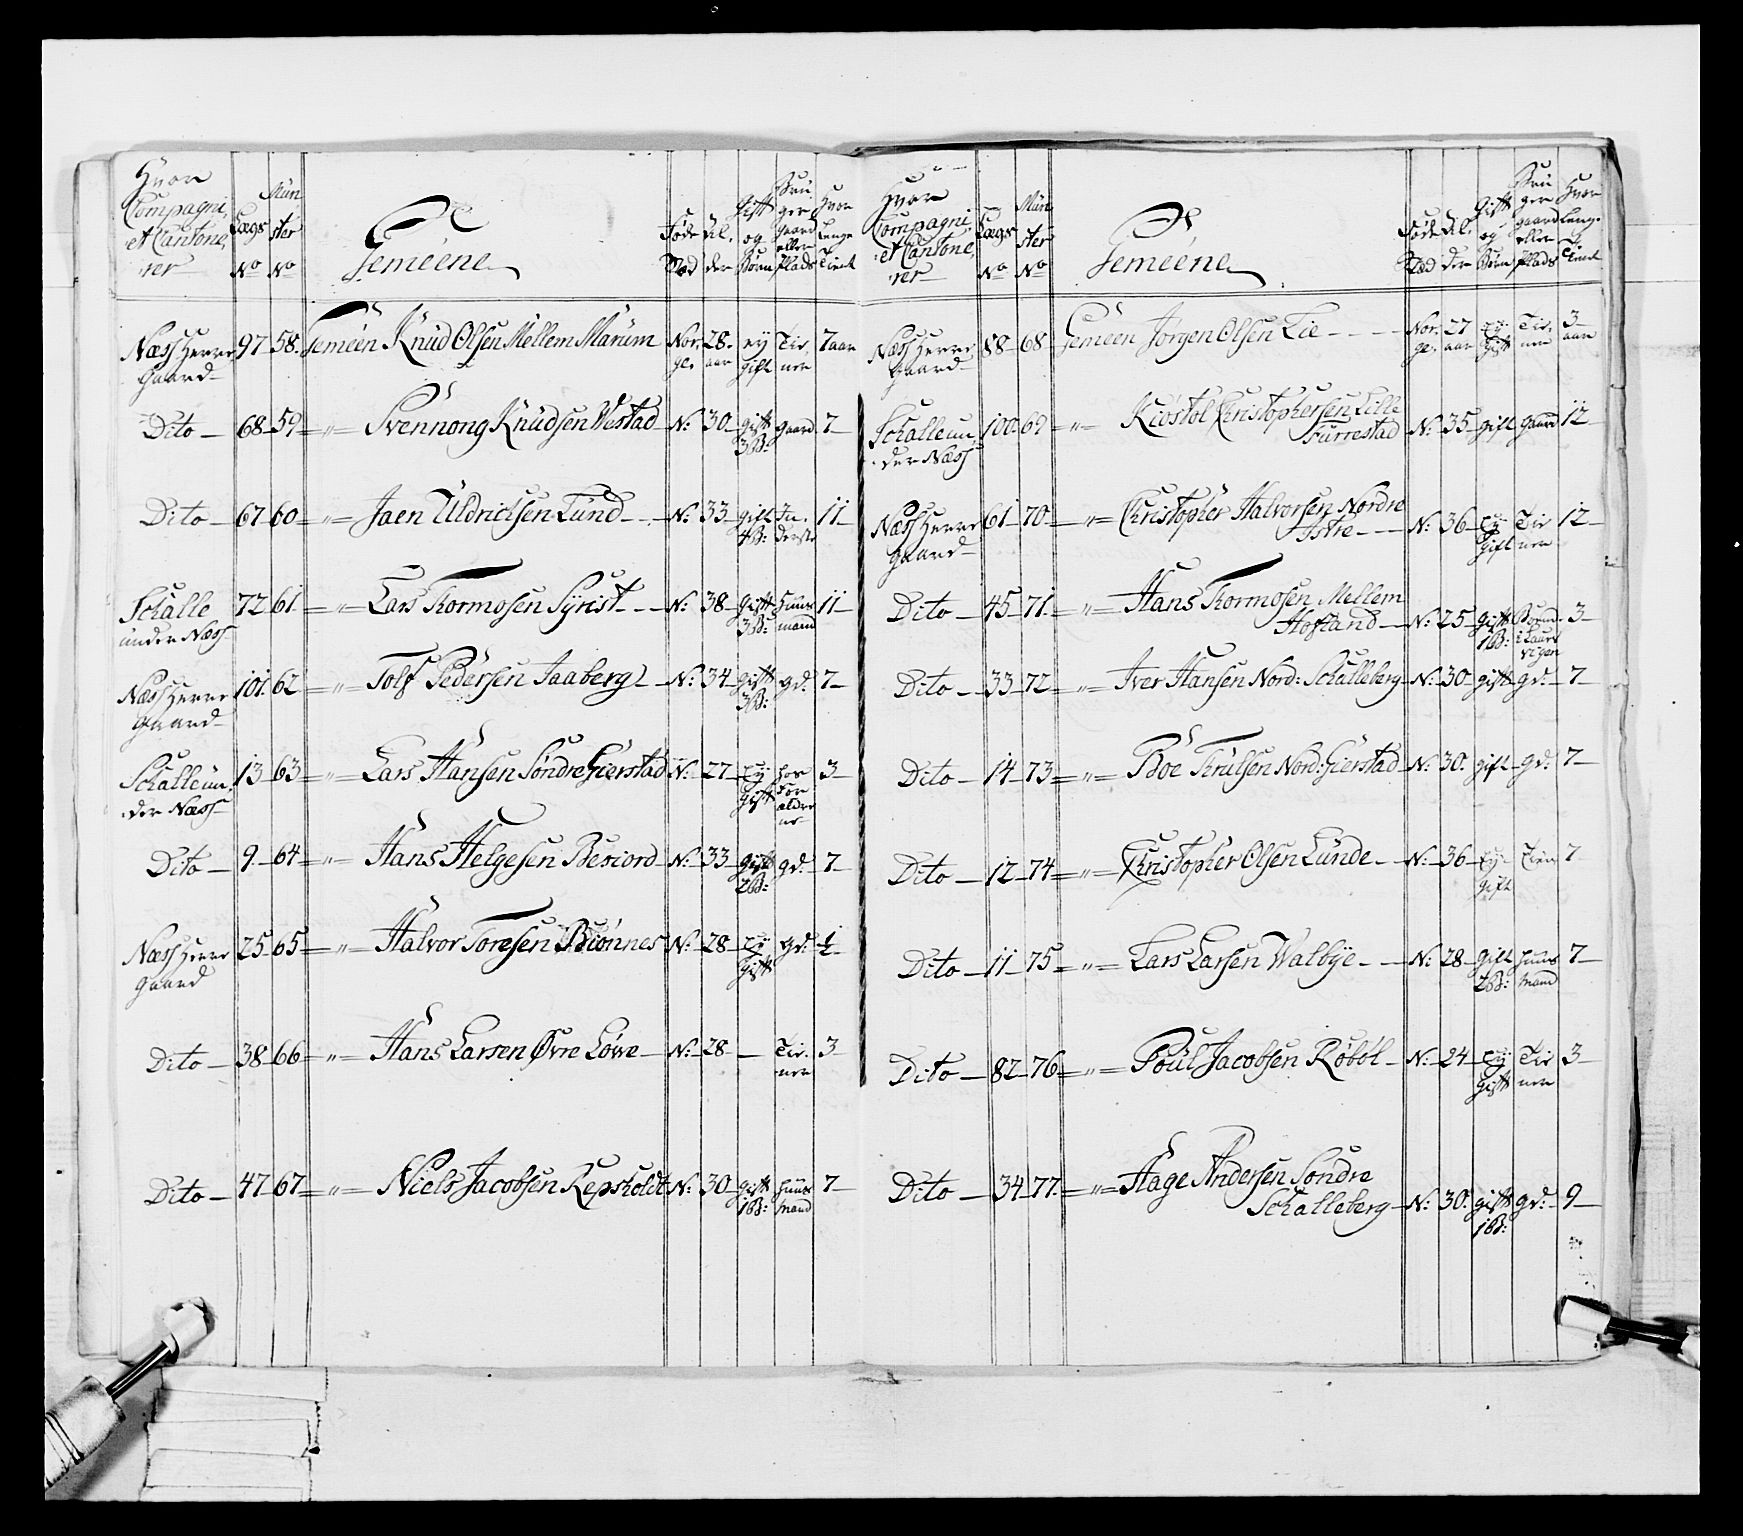 Hvor Compagni, et Cantone, rer Lægs No Mün ster No Gemeene Føde Stæd Al, der Gift og Børn Brü ger gaard eller Plads Hvor Længe Tient
Næss Herre Gaard 97 58. Gemeen Knüd Olsen Mellem Marum Nor, ge. 28. aar ey gift Tie, ner 7 aar
Dito 68 59 " Svennong Knüdsen Westad N: 30 gift 3B: gaard 7
Dito 67 60 " Jaen Uldrichsen Lund N: 33 gift 4B: In, derste 11
Schalle under Næss 72 61. " Lars Thormosen Syrist N: 38 gift 3B: huus mand 11
Næss Herre Gaard 101. 62 " Tolf Pedersen Jaaberg N: 34 gift 3B: gd: 7
Schalle un, der Næss 13 63 " Lars Hansen Söndre Gierstad N: 27 Ey gift hos For ældre ne 3
Dito 9. 64 " Hans Helgesen Beriord N: 33 gift 2B: gd: 7
Næss Herre Gaard 25 65 " Halvor Toresen Biönnes N: 28 Ey gift gd: ½
Dito 38 66 " Hans Larsen Øvre Löwe N: 28 — Tie, ner 3
Dito 47 67 " Niels Jacobsen Kepsholdt N: 30 gift 1B: huus mand 7
Hvor Compagni, et Cantone, rer Lægs No Mün ster No Gemeene Føde Stæd Al, der Gift og Børn Brü ger gaard eller Plads Hvor Længe Tient
Næss Herre Gaard 88 68 Gemeen Jorgen Olsen Lie Nor, ge. 27 aar Ey gift Tie, ner 3 aar
Schalle un, der Næss 100. 69 " Kiöstol Christophersen Lille
Furrestad N: 35 gift gaard 12
Næss Herre Gaard 61 70 " Christopher Halvorsen Nordre
Istre N: 36 Ey gift Tie ner 12
Dito 45 71. " Hans Thormosen Mellem
Hofland N: 25 gift 1B: Boend. i Laur vigen 3
Dito 33 72 " Iver Hansen Nord: Schalleberg N: 30 gift gd: 7
Dito 14 73 " Boe Thrulsen Nord: Gierstad N: 30. gift gd: 7
Dito 12 74 " Christopher Olsen Lunde N: 36 Ey gift Tien 7
Dito 11 75 " Lars Larsen Walbye N: 28 gift 2B: huus mand 7
Dito 82 76 " Poül Jacobsen Röböl N: 24 Ey gift Tie ner 3
Dito 34 77. " Hage Andersen Sondre
Schalleberg N: 30. gift 1B: gd: 9